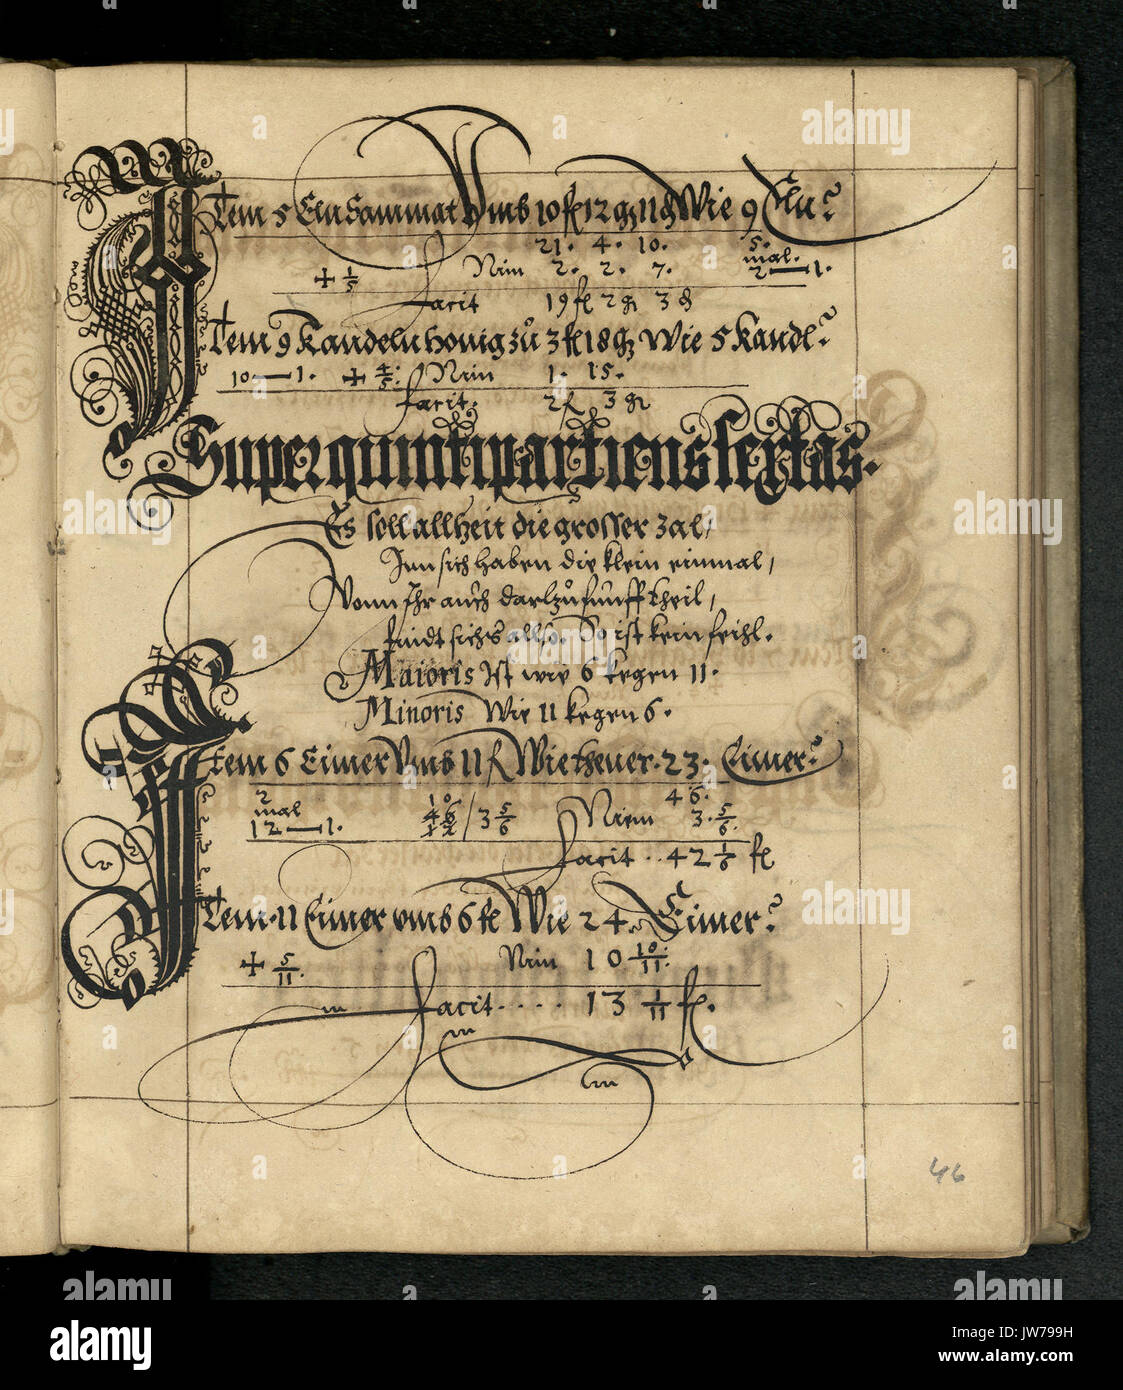 Item 5 Eln Sammat Vmb 10 fl 12 gr 11 ₰ Wie 9 Eln?
21. 4. 10. 5.
mal.
+ 1/5 Nim 2. 2. 7. 2—1.
facit 19 fl 2 gr 3 ₰
Item 9 Kandeln honig zů 3 fl 18 gr Wie 5 Kandl?
10—1. + 4/5: Nim 1. 15.
facit. 2 fl 3 gr
Superquintipartiens sextas.
Es soll allzeit die grosser zal,
Inn sich haben die klein einmal,
Vonn Ihr auch darzů funff theil,
findt sichs allso. So ist kein feihl.
Maioris Ist wie 6 kegen 11.
Minoris Wie 11 kegen 6.
Item 6 Eimer Vmb 11 fl Wie theuer. 23. Eimer?
2 46.
mal
12—1. / 3 5/6 Niem 3. 5/6.
facit .. 42 1/6 fl
Item. 11 Eimer vmb 6 fl Wie 24. Eimer?
+ 5/11 Nim 10 10/11:
facit.... 13 1/11 fl.
46
alamy
JW799H
www.alamy.com